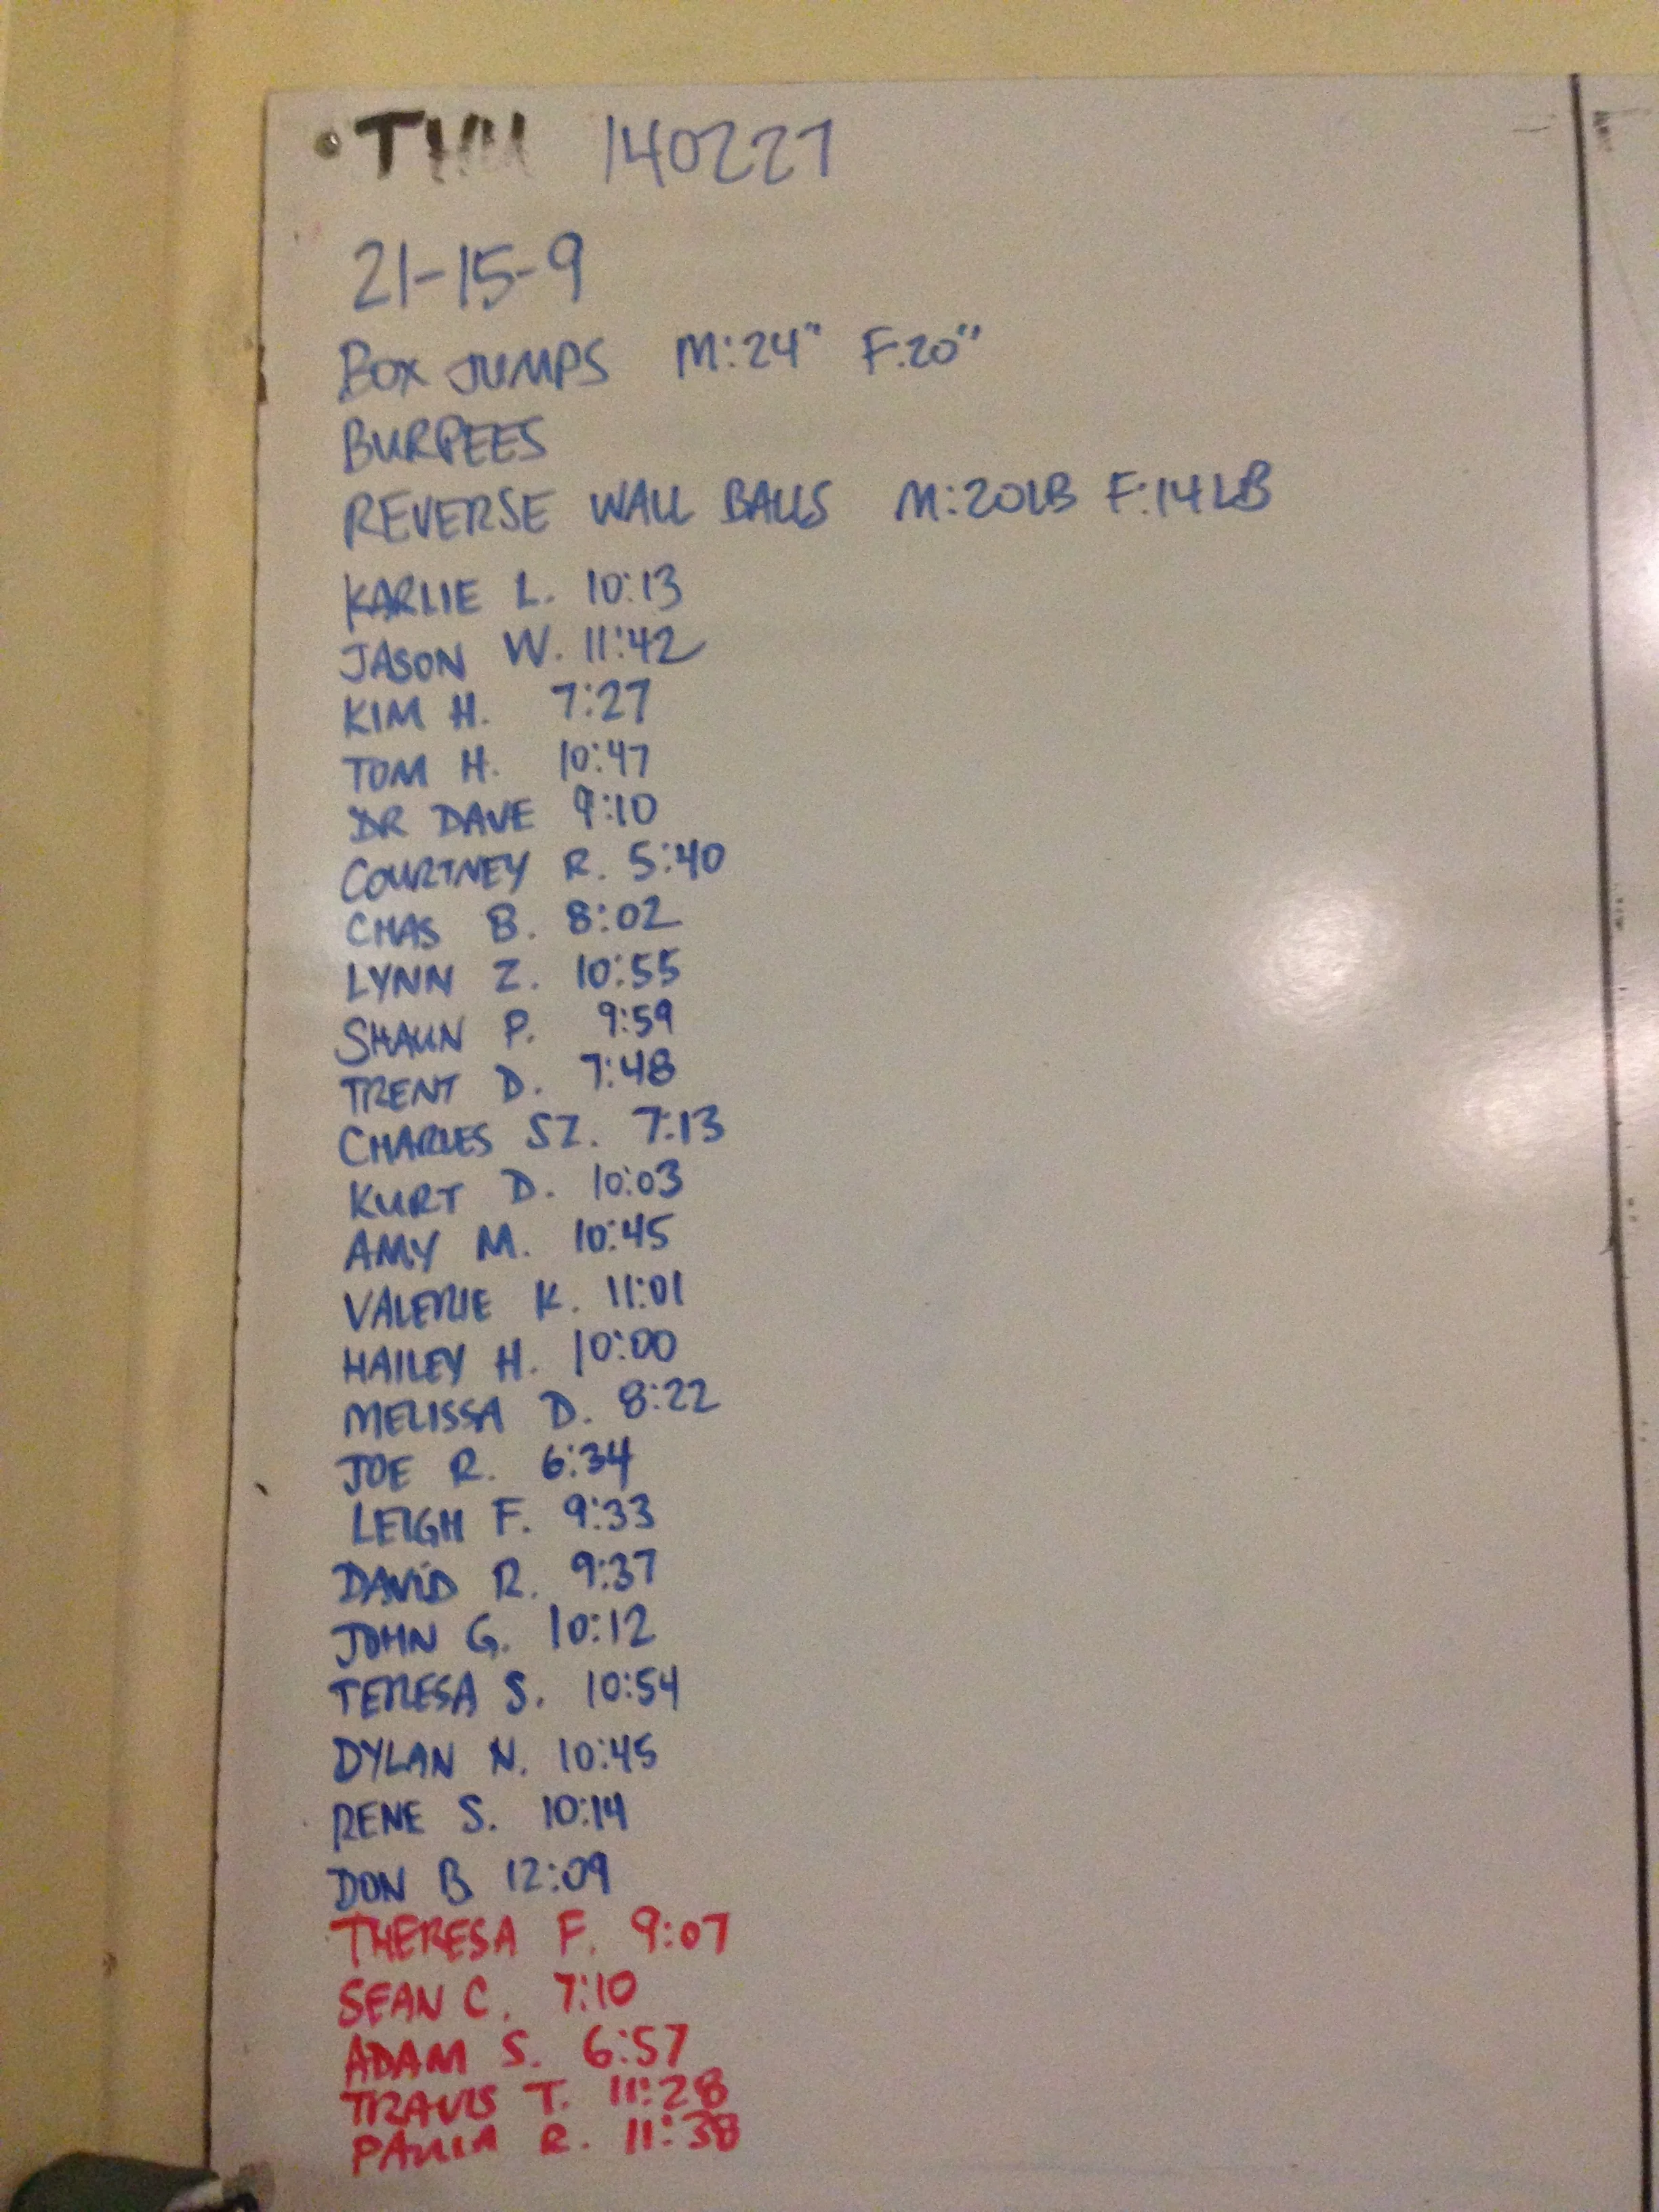 THU 140227
21-15-9
BOX JUMPS M:24" F:20"
BURPEES
REVERSE WALL BALLS M:20LB F:14LB
KARLIE L. 10:13
JASON W. 11:42
KIM H. 7:27
TOM H. 10:47
DR DAVE 9:10
COURTNEY R. 5:40
CHAS B. 8:02
LYNN Z. 10:55
SHAUN P. 9:59
TRENT D. 7:48
CHARLES SZ. 7:13
KURT D. 10:03
AMY M. 10:45
VALERIE K. 11:01
HAILEY H. 10:00
MELISSA D. 8:22
JOE R. 6:34
LEIGH F. 9:33
DAVID R. 9:37
JOHN G. 10:12
TERESA S. 10:54
DYLAN N. 10:45
RENE S. 10:14
DON B 12:09
THERESA F. 9:07
SEAN C. 7:10
ADAM S. 6:57
TRAVIS T. 11:28
PAULA R. 11:38